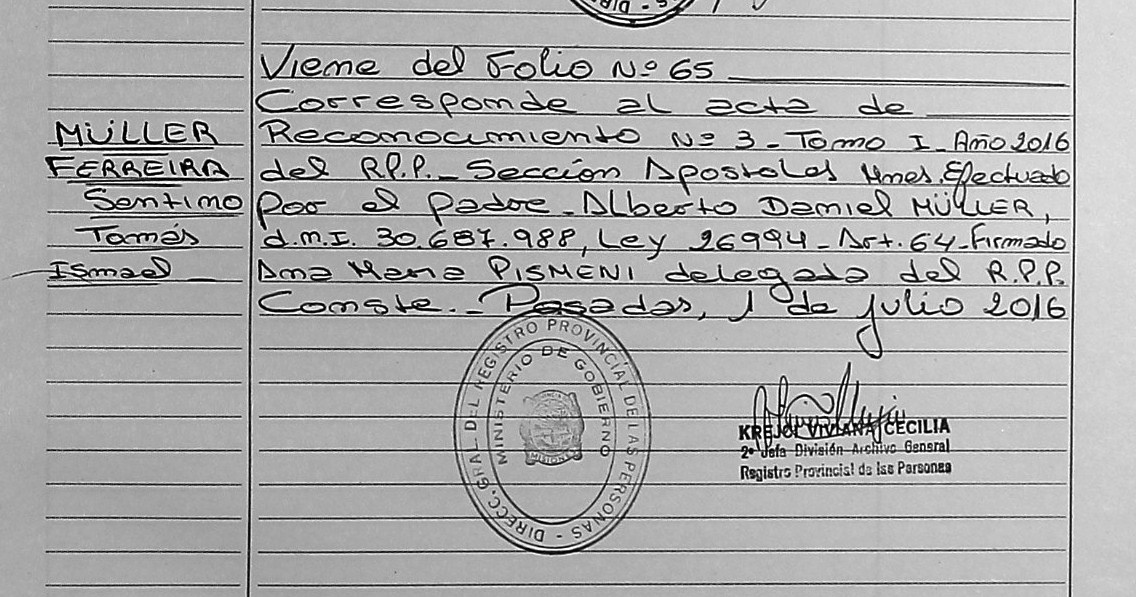 Viene del Folio Nº 65
Corresponde al acta de
MÜLLER Reconocimiento Nº 3 - Tomo I - Año 2016
FERREIRA del R.P.P. - Sección Apostoles Mnes. Efectuado
Santino por el padre - Alberto Daniel MÜLLER,
Tomás d.n.i. 30.687.988, Ley 26994 - Art. 64 - Firmado
Ismael Ana Maria PISMENI delegada del R.P.P.
Conste. - Posadas, 1 de julio 2016
DIRECC. GRAL. DEL REGISTRO PROVINCIAL DE LAS PERSONAS -
MINISTERIO DE GOBIERNO
MISIONES
KREJCI VIVIANA CECILIA
2º Jefa División Archivo General
Registro Provincial de las Personas